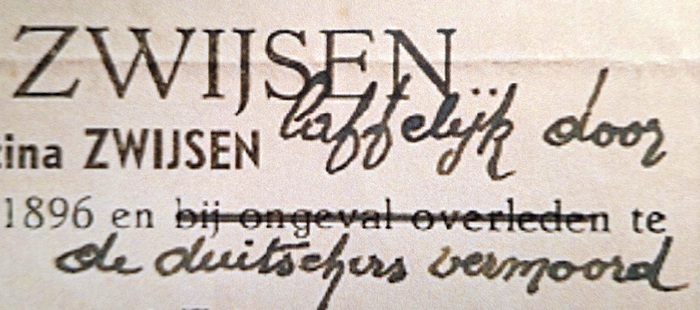 ZWIJSEN
laffelijk door
cina ZWIJSEN
1896 en bij ongeval overleden te
de duitschers vermoord